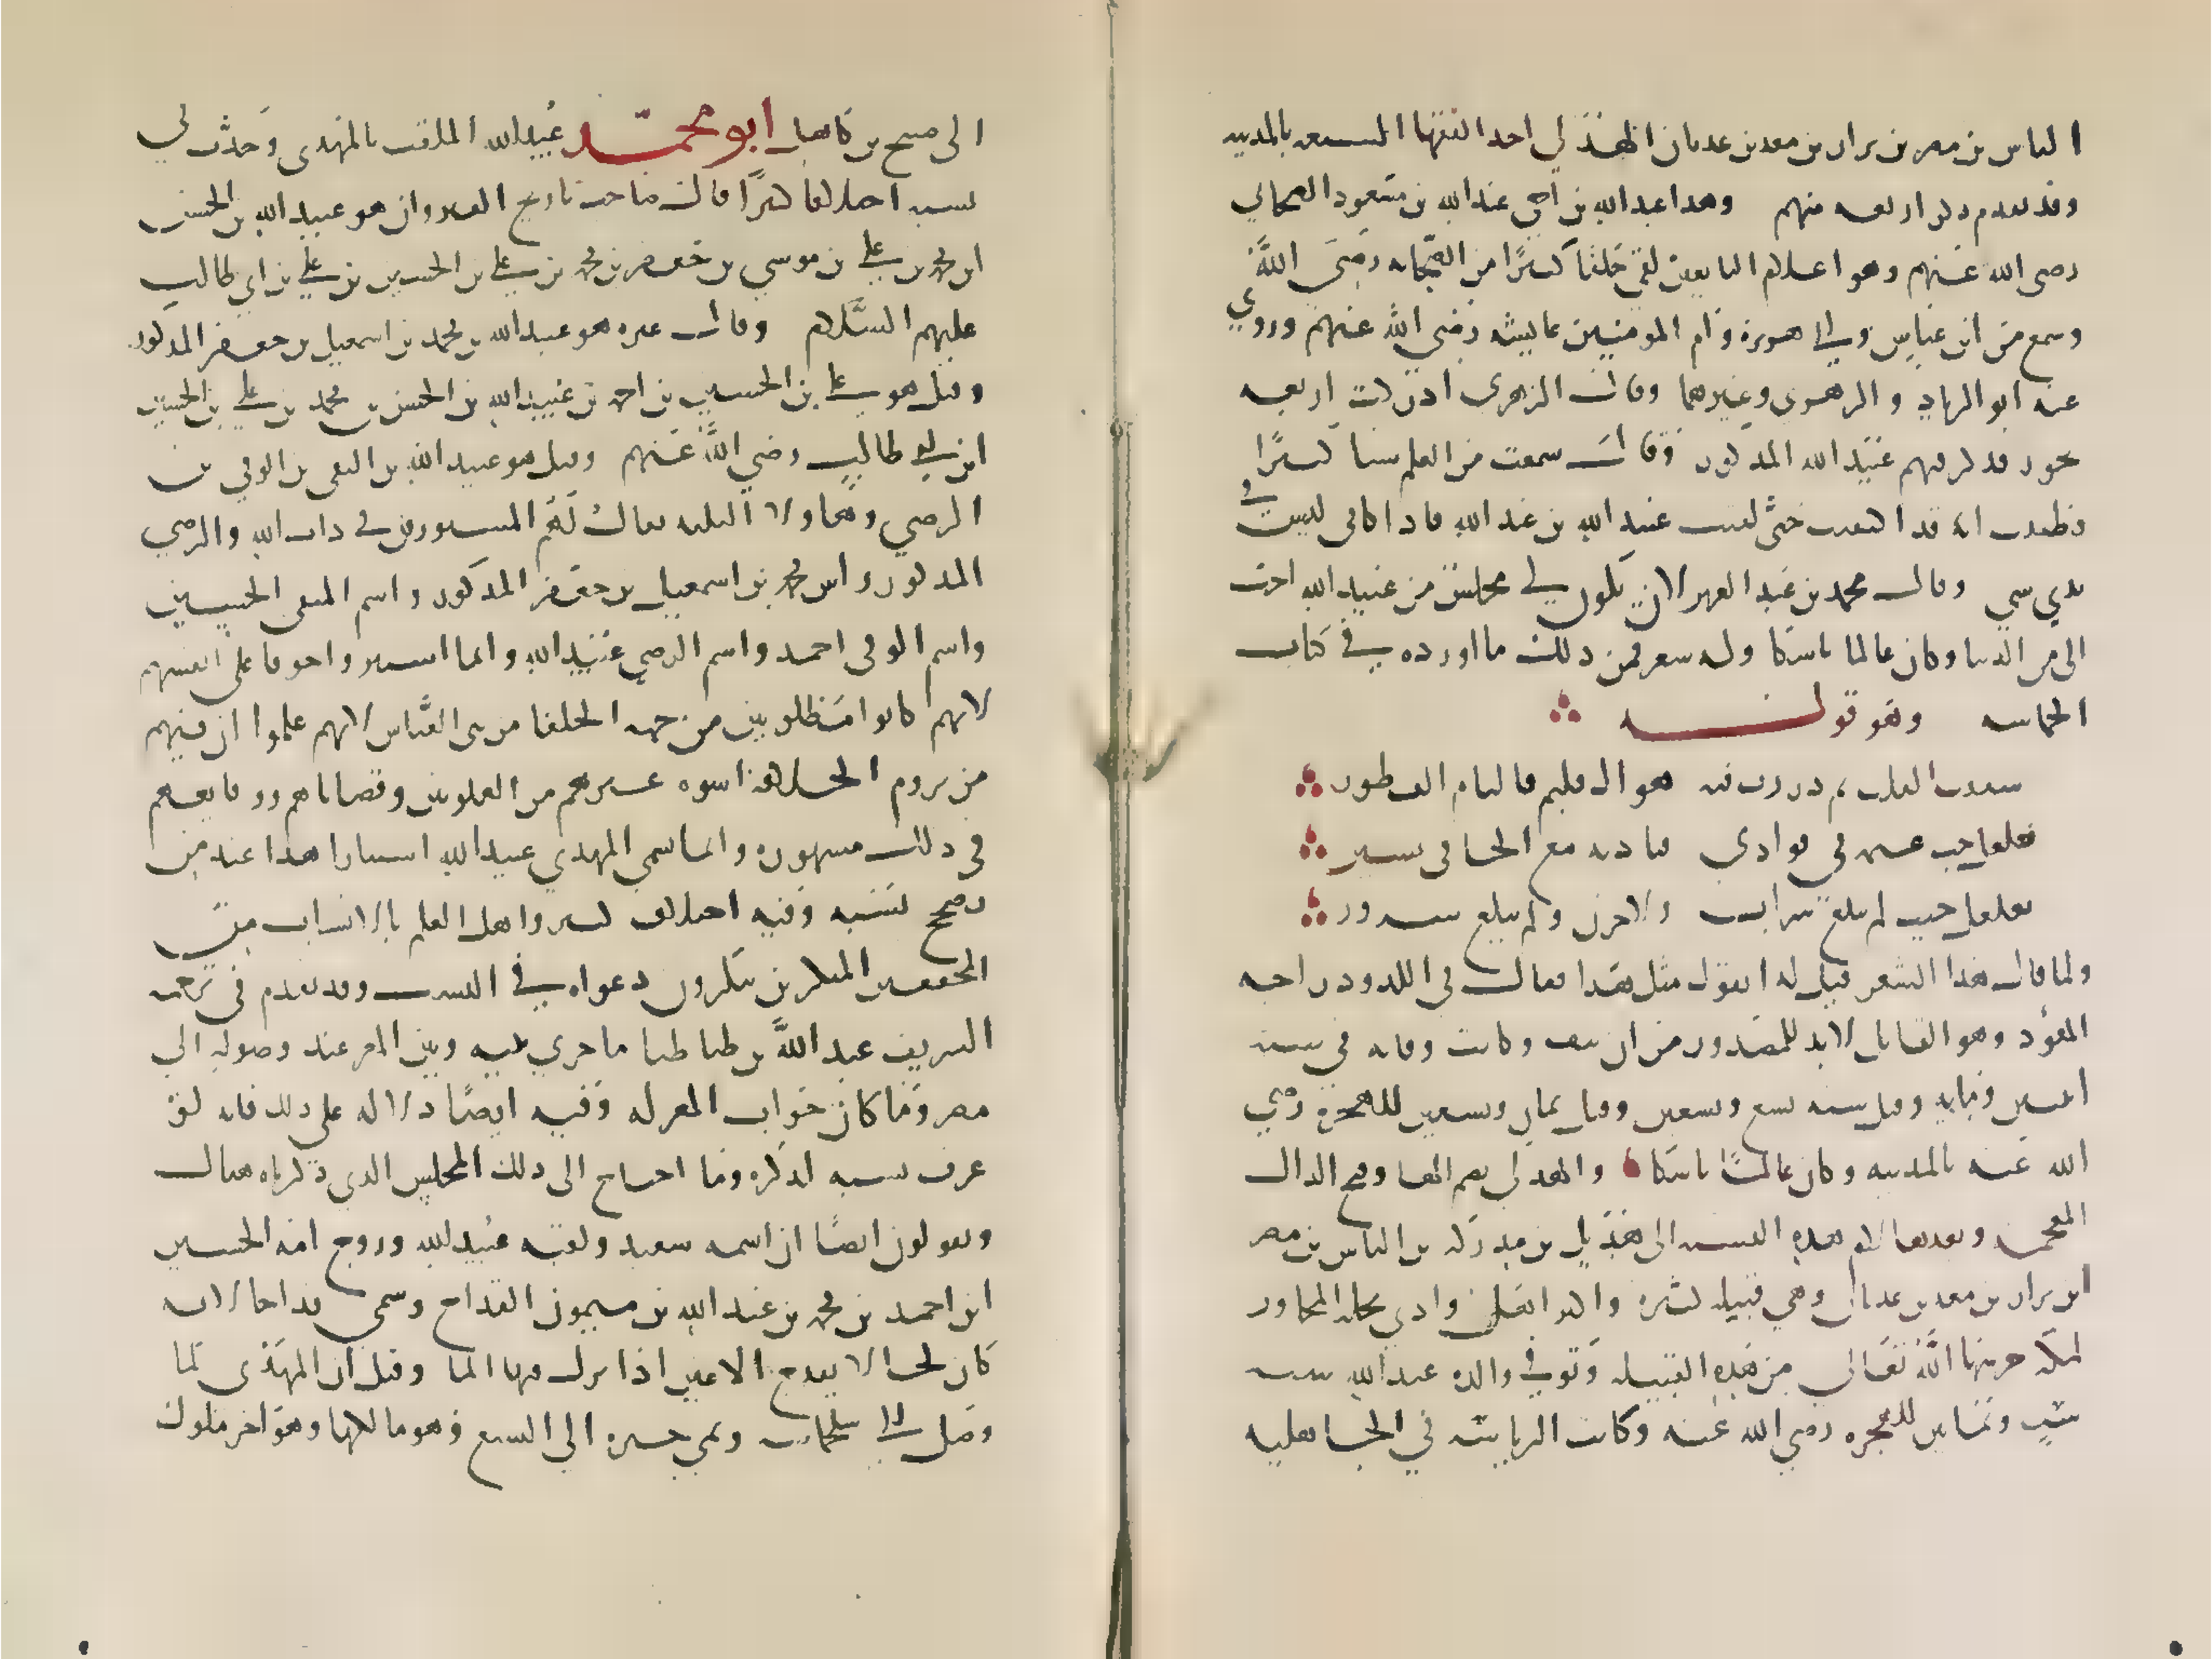 الياس بن مضر بن نزار بن معد بن عدنان الهذلي احد الفقها السبعه بالمدينه
وقد تقدم ذكر اربعه منهم وهذا عبد الله بن اخي عبد الله بن مسعود الصحابي
رضي الله عنهم وهو من اعلام التابعين لقي خلقا كثيرًا من الصحابه رضي الله
وسمع من ابن عباس وابي هريرة وام المومنين عايشه رضي الله عنهم وروي
عنه ابو الزناد والزهري وغيرهما وقال الزهري ادركت اربعه
بحور فذكر فيهم عبيد الله المذكور وقال سمعت من العلم شيا كثيرًا
فظننت اني قد اكتفيت حتى لقيت عبيد الله بن عبد الله فاذا كاني ليس في
يدي شي وقال عمر بن عبد العزيز لان يكون لي مجلس من عبيد الله احب
الي من الدنيا وكان عالما ناسكا وله شعر فمن ذلك ما اورده في كتاب
الحماسه وهو قوله
شققت القلب ثم ذررت فيه هواك فليم فالتام الفطور
تغلغل حب عثمه في فوادي فباديه مع الخافي يسير
تغلغل حيث لم يبلغ شراب ولا حزن ولم يبلغ سرور
ولما قال هذا الشعر قيل له اتقول مثل هذا فقال في اللدود راحه
المفؤد وهو القايل لابد للمصدور من ان ينفث وكانت وفاته في سنه
اثنين ومايه وقيل سنه تسع وتسعين وقيل ثمان وتسعين للهجره رضي
الله عنه بالمدينه وكان عالمًا ناسكا والهذلي بضم الها وفتح الذال
المعجمه وبعدها لام هذه النسبه الى هذيل بن مدركه بن الياس بن مضر
ابن نزار بن معد بن عدنان وهي قبيله كثيره واكثر اهل وادي نخله المجاور
لمكه حرسها الله تعالى من هذه القبيله وتوفي والده عبد الله سنه
ست وثمانين للهجره رضي الله عنه وكانت الرياسه في الجاهليه
الى صبح بن كاهل ابو محمد عبيد الله الملقب بالمهدي وجدت في
نسبه اختلافا كثيرًا قال صاحب تاريخ القيروان هو عبيد الله بن الحسن
ابن محمد بن علي بن موسي بن جعفر بن محمد بن علي بن الحسين بن علي بن ابي طالب
عليهم السلام وقال غيره هو عبيد الله بن محمد بن اسمعيل بن جعفر المذكور
وقيل هو علي بن الحسين بن احمد بن عبيد الله بن الحسن بن محمد بن علي بن الحسين
ابن علي بن ابي طالب رضي الله عنهم وقيل هو عبيد الله بن التقي بن الوفي بن
الرضي وهاولا الثلثه يقال لهم المستورون في ذات الله والرضي
المذكور ابن محمد بن اسمعيل بن جعفر المذكور واسم التقي الحسين
واسم الوفي احمد واسم الرضي عبيد الله وانما استتروا خوفا على انفسهم
لانهم كانوا مطلوبين من جهه الخلفا من بني العباس لانهم علموا ان فيهم
من يروم الخلافه اسوه غيرهم من العلويين وقضاياهم ووقايعهم
في ذلك مشهوره وانما سمي المهدي عبيد الله استتارا هذا عند من
يصحح نسبه وفيه اختلاف كثير واهل العلم بالانساب من
المحققين المنكرين ينكرون دعواه في النسب وقد تقدم في ترجمه
الشريف عبد الله بن طباطبا ما جري بينه وبين المعز عند وصوله الى
مصر وما كان جواب المعز له وفيه ايضًا دلاله على ذلك فانه لو
عرف نسبه لذكره وما احتاج الى ذلك المجلس الذي ذكرناه هناك
ويقولون ايضًا ان اسمه سعيد ولقبه عبيد الله وزوج امه الحسين
ابن احمد بن محمد بن عبد الله بن ميمون القداح وسمي قداحا لانه
كان كحالا يقدح الاعين اذا نزل فيها الما وقيل ان المهدي لما
وصل الى سجلماسه ونمي خبره الى اليسع وهو مالكها وهو اخر ملوك